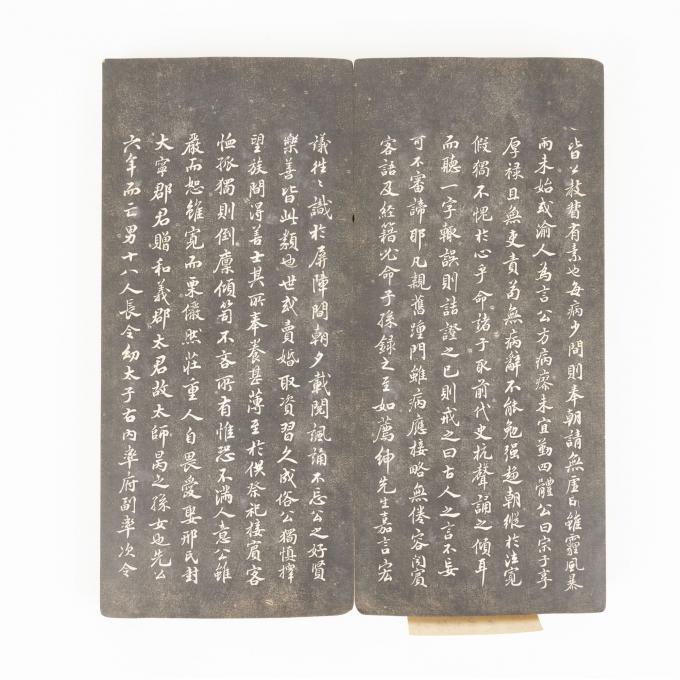 皆以教督有素也每病少間則奉朝請無虛日雖霾風暴
雨未始或渝人為言公方病瘵未宜勤四體公曰宗子享
厚祿且無吏責苟無病辭不能勉强趨朝縱於法寬
假獨不愧於心乎命諸子取前代史抗聲誦之傾耳
而聽一字輙誤則詰證之已則戒之曰古人之言不妄
可不審諦耶凡親舊踵門雖病應接略無倦容聞賓
客語及經籍必命子孫録之至如薦紳先生嘉言宏
議往〻識於屏障間朝夕載閱諷誦不忘公之好賢
樂善皆此類也世或賣婚取資習久成俗公獨慎擇
望族問得善士其所奉養甚薄至於供祭祀接賓客
恤孤獨則倒廩傾笥不吝所有惟恐不滿人意公雖
嚴而恕雖寬而栗儼然莊重人自畏愛娶邢氏封
大寧郡君贈和義郡太君故太師昺之孫女也先公
六年而亡男十八人長令幼太子右內率府副率次令